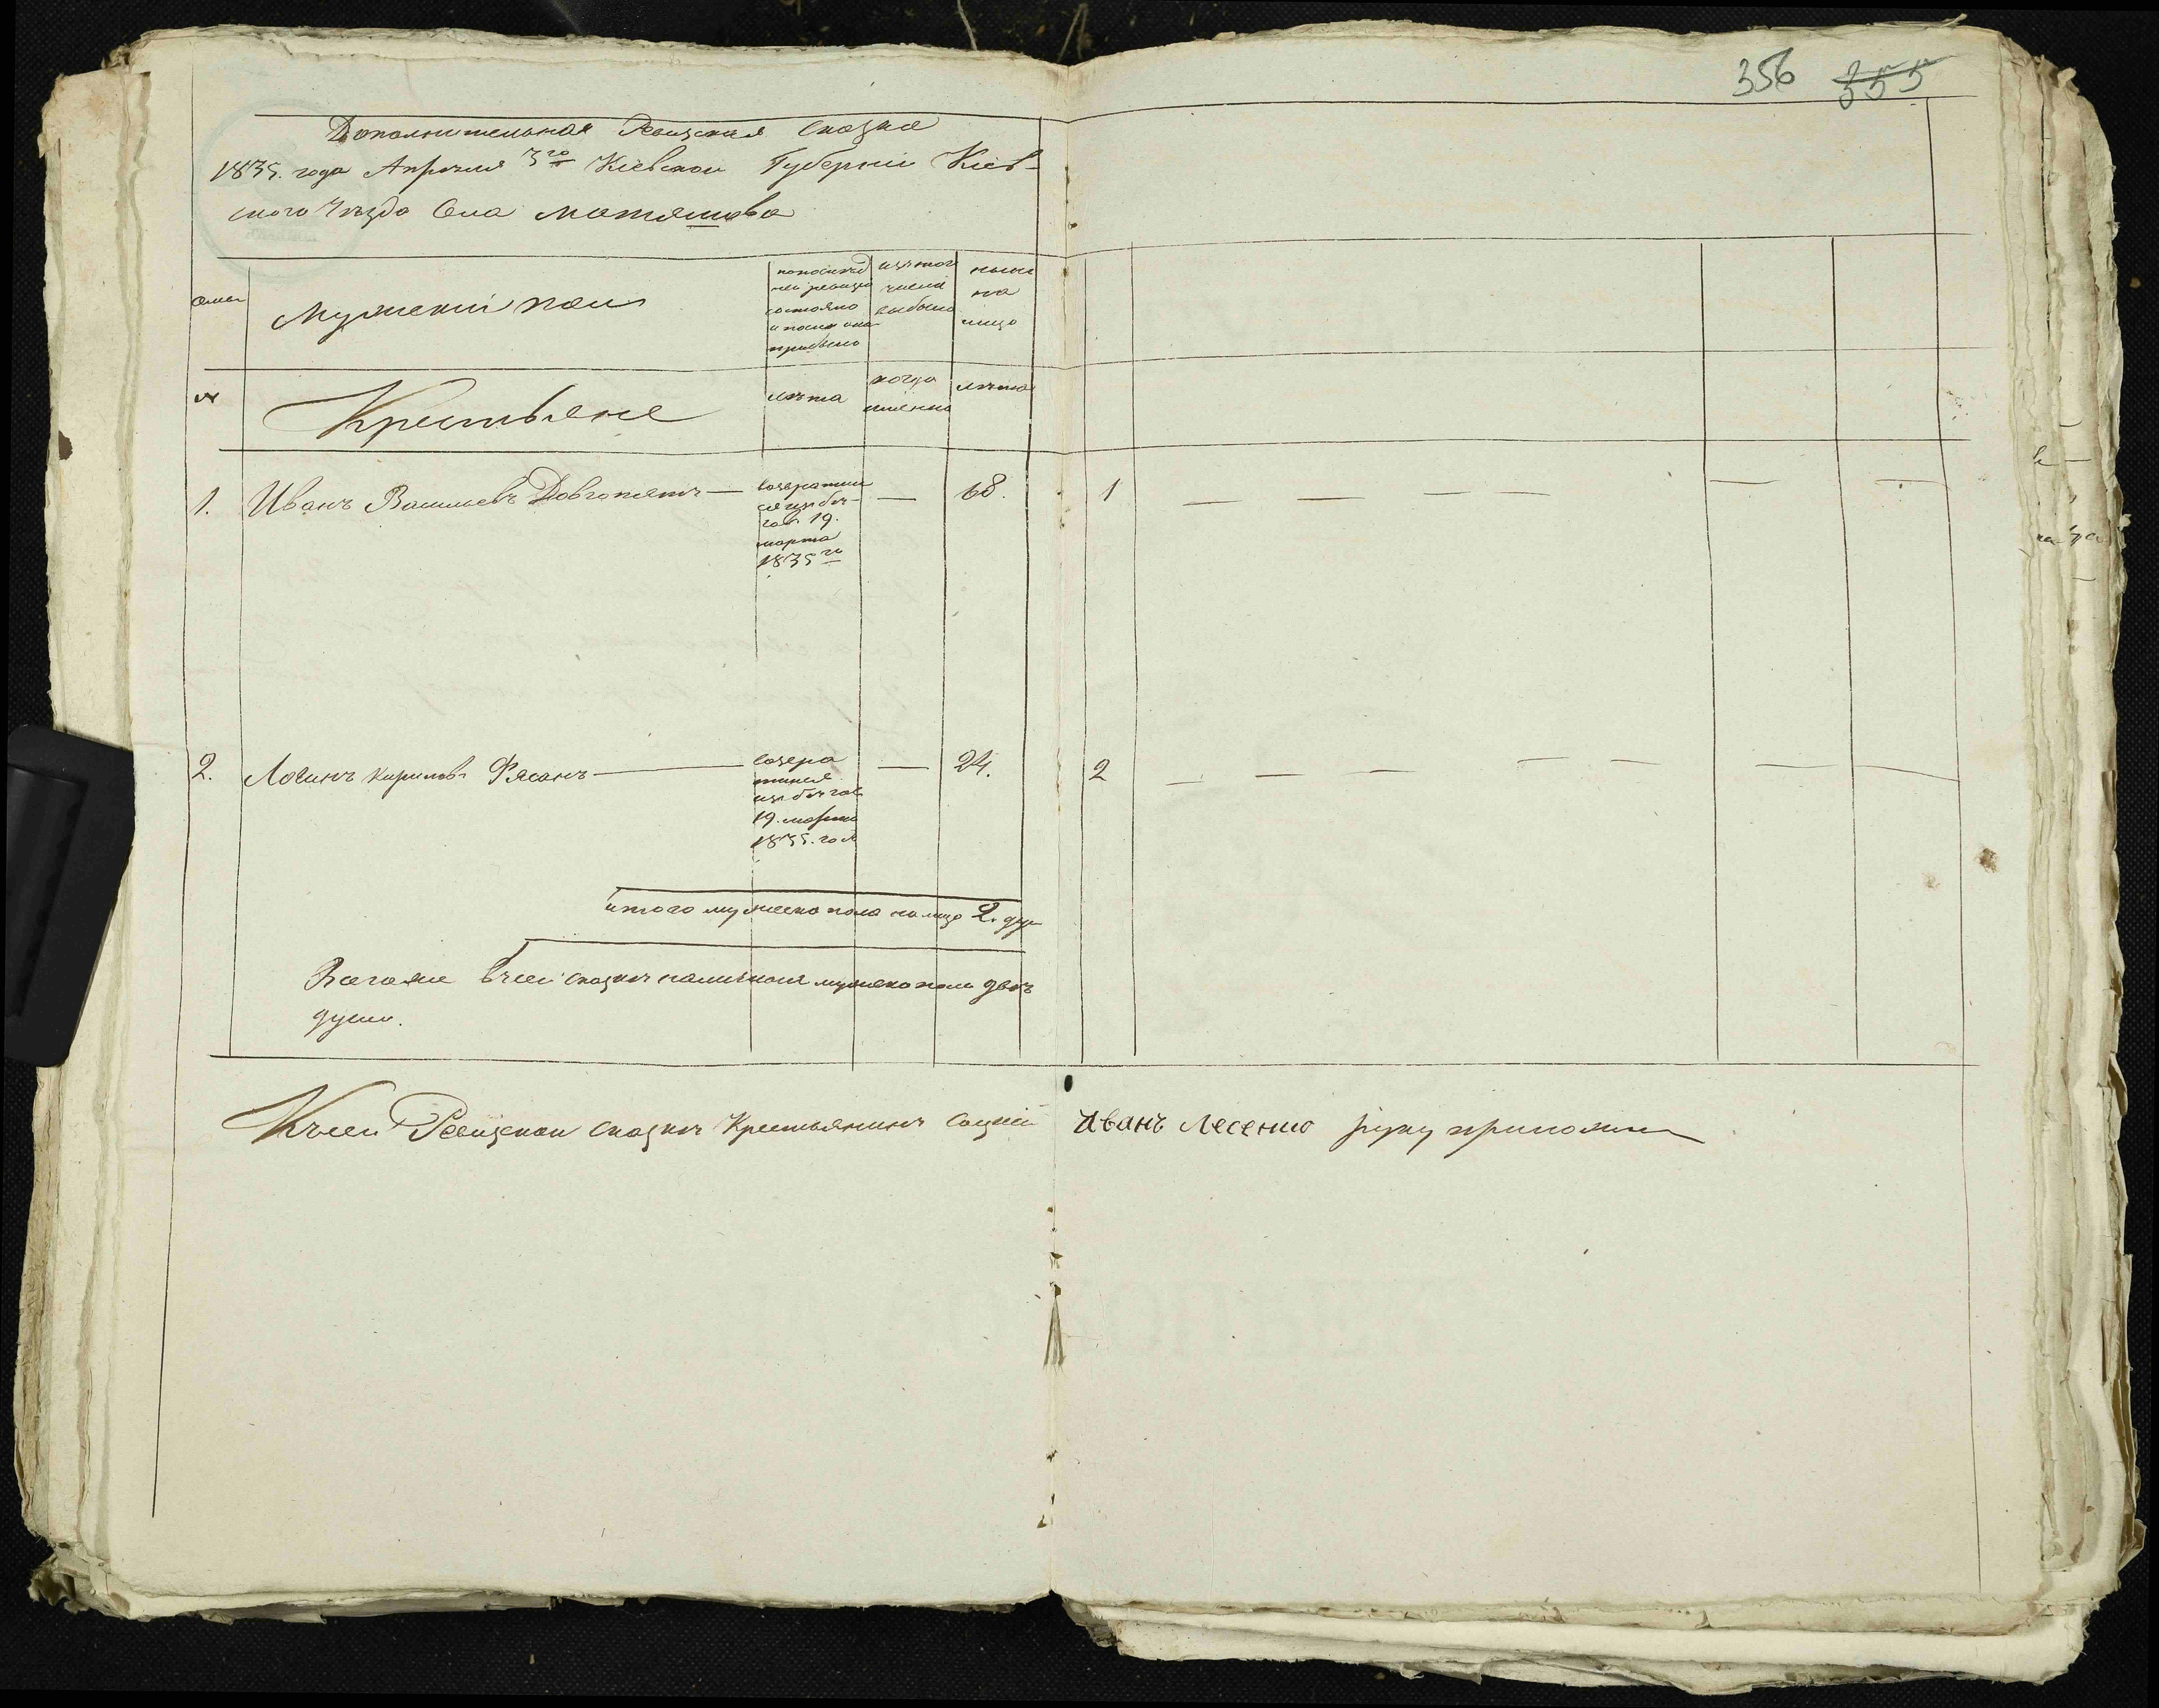 356 355
Дополнительная Ревизская Сказка
1835. года Апреля 3го Кіевской Губерніи Кіев-
ского Уезда Села Матяшовка
Мужский пол
по послед
ней ревизіи
состояло
и после она
прибыло
изъ того
числа
выбыло
ныне
на
лицо
№
Крестьяне
лета
когда
именно
лета
1. Иванъ Васильевъ Довгопятъ —
возвратил
ся изъ бе-
гов 19.
марта
1835го
— 68.
1 — — — — — —
2. Логинъ Кирилов Рясанъ —
возвра
тился
изъ бегов
19. марта
1835. год
— 24.
2 — — — — — — —
итого мужеска пола на лицо 2. душ
Всего же в сей сказке мужеска пола две
души.
К сей Ревизской сказке Крестьянинъ Соцкій Иванъ Лесенко руку приложил